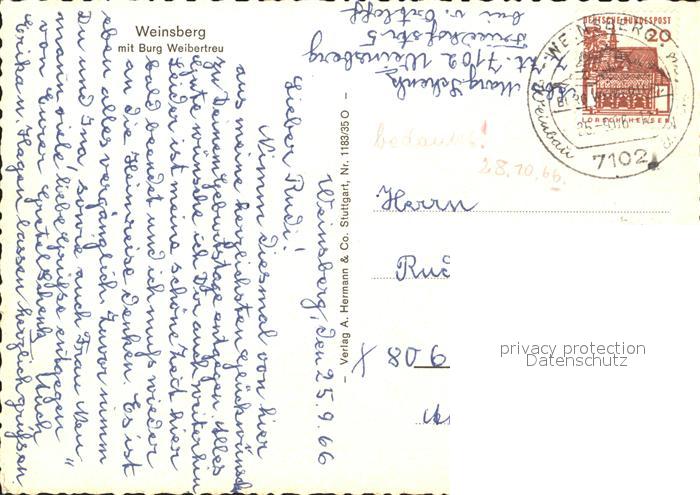 Weinsberg
mit Burg Weibertreu
Weinsberg, den 25.9.66
Lieber Rudi!
Nimm diesmal von hier
aus meine herzlichsten Glückwünsche
zu Deinem Geburtstage entgegen. Alles
Gute wünsche ich Dir auch weiterhin
Leider ist meine schöne Zeit hier
bald beendet und ich muß wieder
an die Heimreise denken. Es ist
eben alles vergänglich. Zuvor nimm
Du und Irm, sowie auch Frau Neu-
mann viele, liebe Grüße entgegen
von Eurer Gretel Schenk. Auch
Erika u. Hagen lassen herzlich grüßen.
– Verlag A. Hermann & Co. Stuttgart, Nr. 1183/35 O –
Abs.
Marg. Schenk
z. Zt. 7102 Weinsberg
Friedhofstr. 5
bei v.
DEUTSCHE BUNDESPOST
20
LORSCH/HESSEN
WEINSBERG
Weinbau
7102
bedankt!
28.10.66.
Herrn
Rud
X 908
privacy protection
Datenschutz